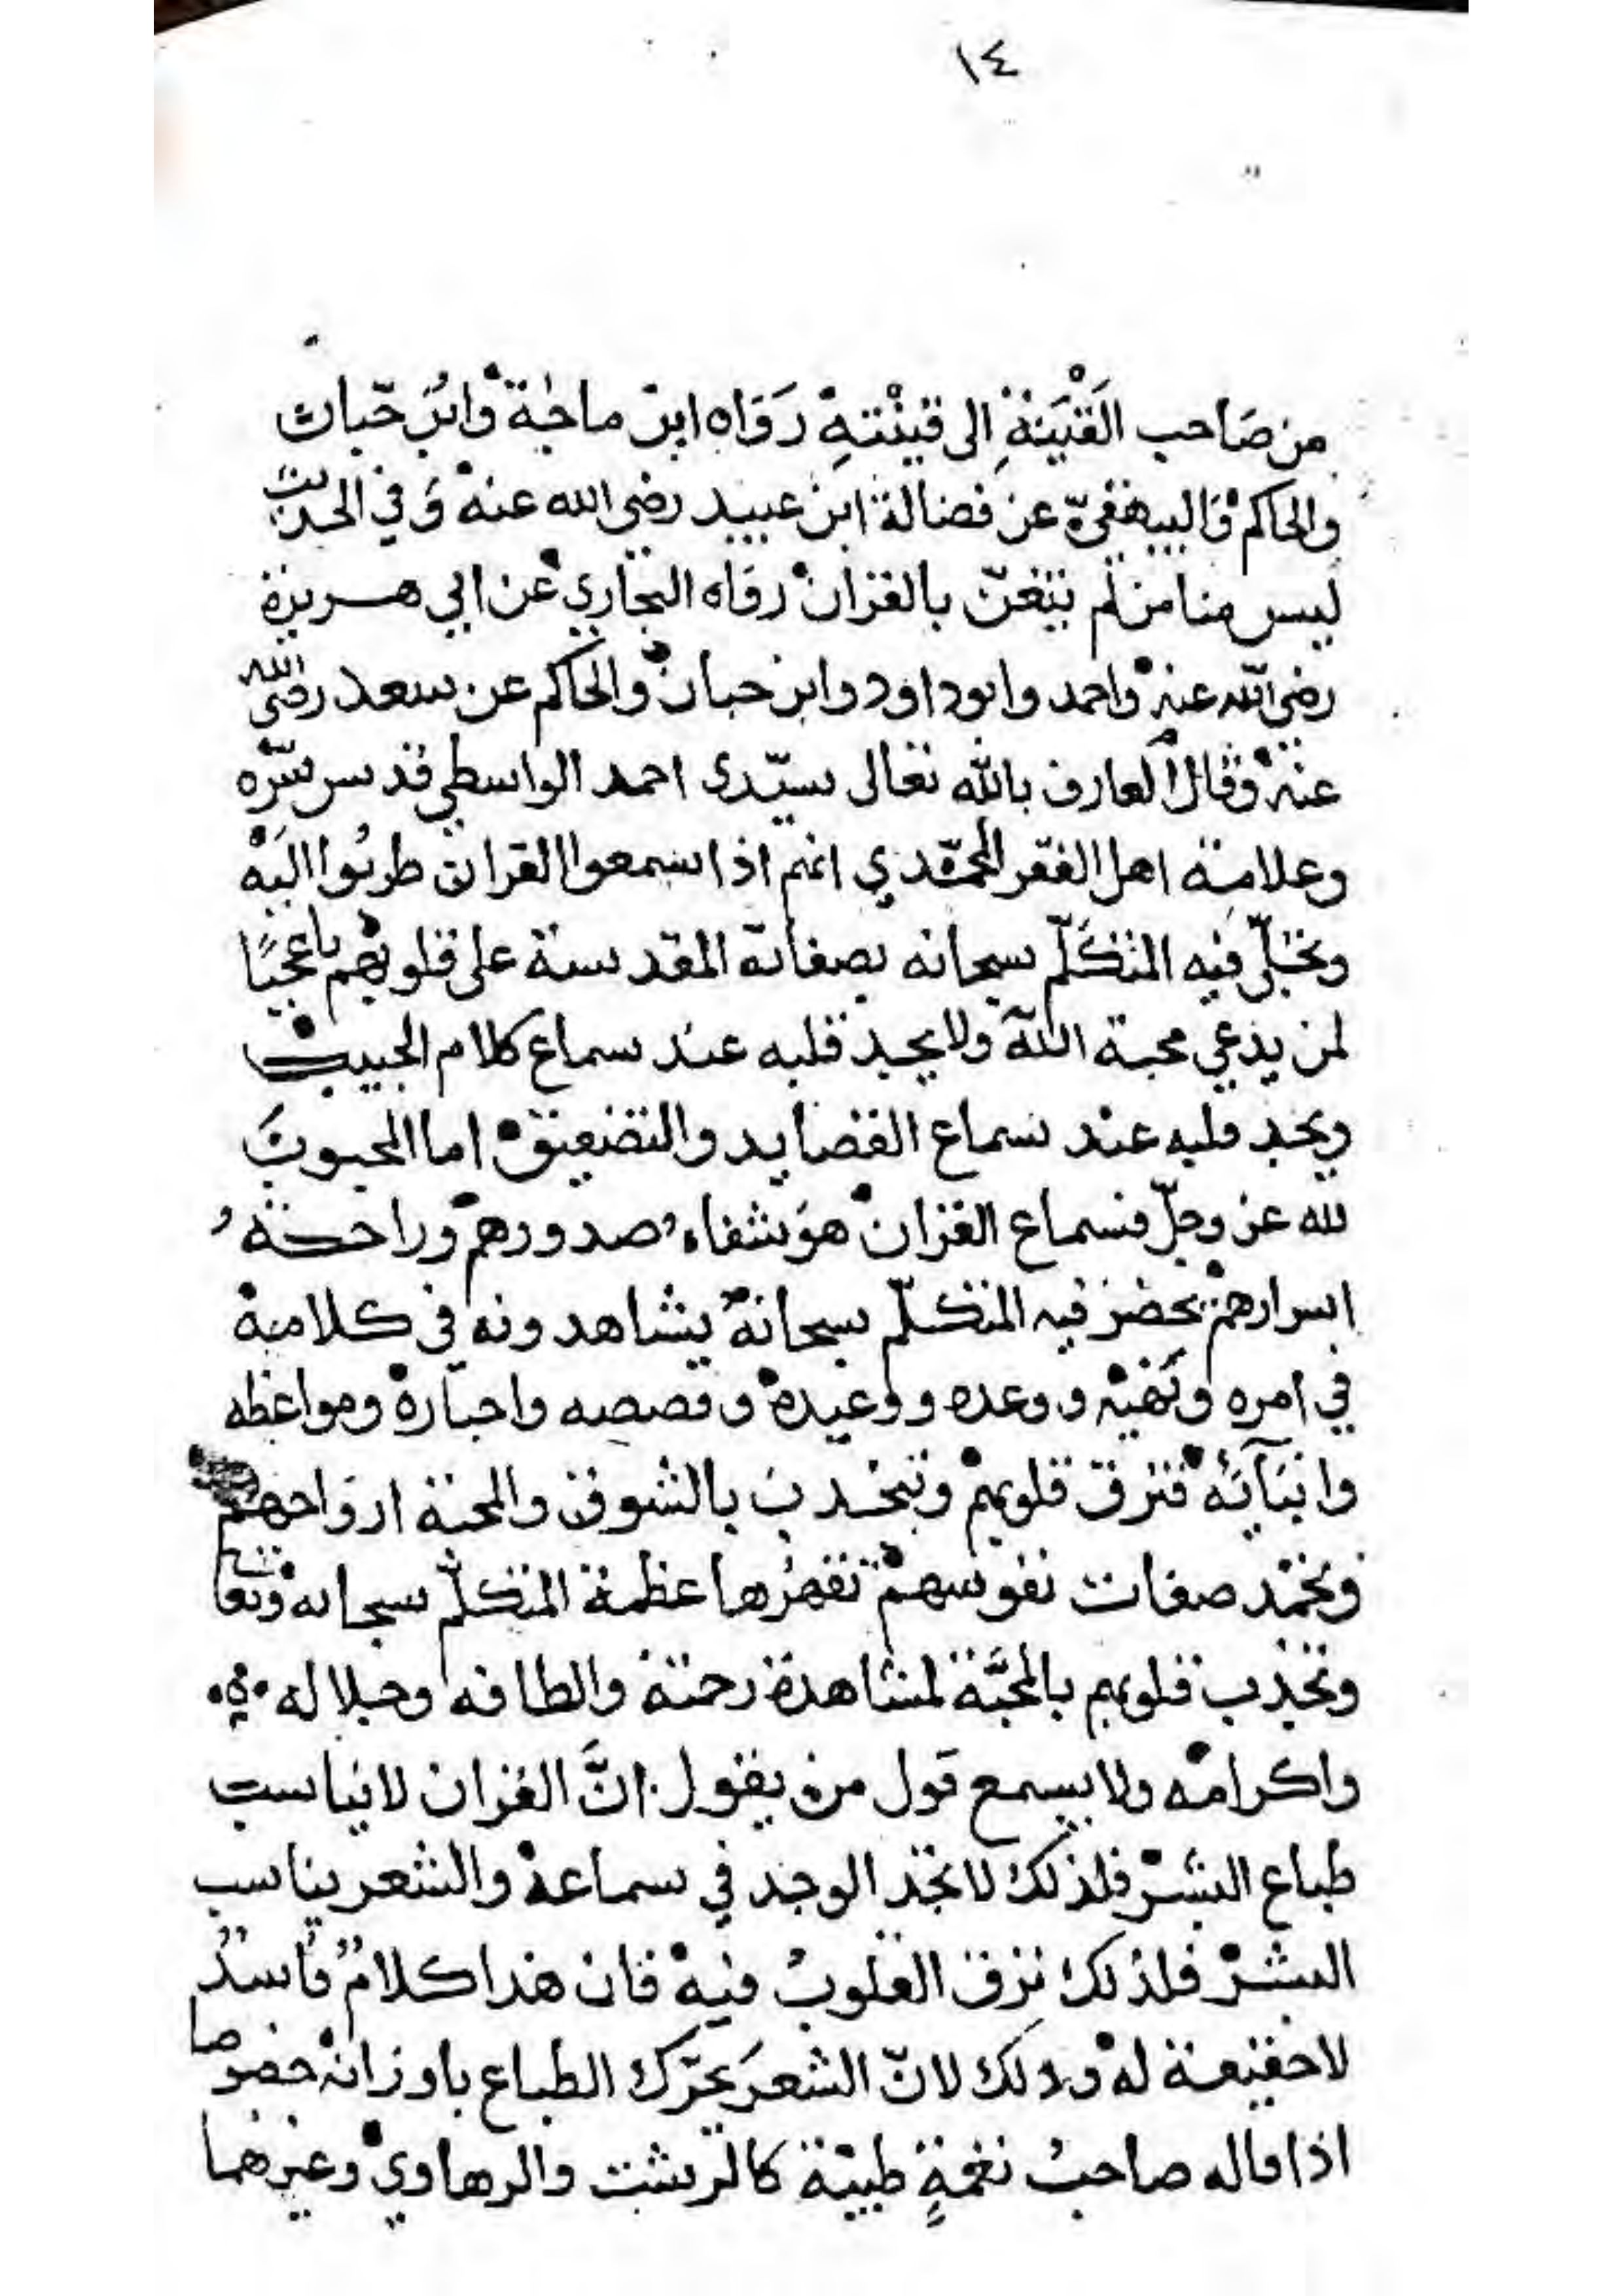 ١٤
من صَاحب القَيْنَةِ الى قينْتهِ رَوَاه ابن ماجة وابن حبان
والحاكم والبيهقيّ عن فضالة ابن عبيد رضي الله عنه وَفي الحديث
ليس منا من لم يتغنّ بالقران رواه البخاري عن ابي هريرة
رضي الله عنه واحمد وابوداود وابن حبان والحاكم عن سعد رضي الله
عنه وقال العارف بالله تعالى سيّدى احمد الواسطي قدس سرّه
وعلامة اهل الفقر المحمّدي انهم اذا سمعوا القران طربُوا اليْه
وتجلّى فيه المتكلّم سبحانه بصفاته المقدسة على قلوبهم ياعجبًا
لمن يدعي محبة الله ولا يجد قلبه عند سماع كلام الحبيب
ويجد قلبه عند سماع القصايد والتصفيق اما المحبوبَ
لله عز وجلّ فسماع القران هوَ شفاء صدورهم وراحة
اسرارهم يحضر فيه المتكلّم سبحانه يشاهدونه في كلامه
في امره ونهيه ووعده ووعيده وقصصه واخباره ومواعظه
وانبَآئه فترق قلوبهم وتنجذب بالشوق والمحبة ارواحهم
وتخمد صفات نفوسهم تقهرُها عظمة المتكلّم سبحانه وتعالى
وتجذب قلوبهم بالمحبَّة لمشاهدة رحمته والطافه وجلاله
واكرامه ولا يسمع قول من يقول انَّ القران لا يناسب
طباع البشر فلذلك لا تجد الوجد في سماعه والشعر يناسب
البشر فلذلك ترق القلوبُ فيه فان هذا كلامٌ فاسدٌ
لا حقيقة له وذلك لانّ الشعرَ يحرّك الطباع باوزانه خصوصا
اذا قاله صاحبُ نغمةٍ طيبة كالرست والرهاوي وغيرهما